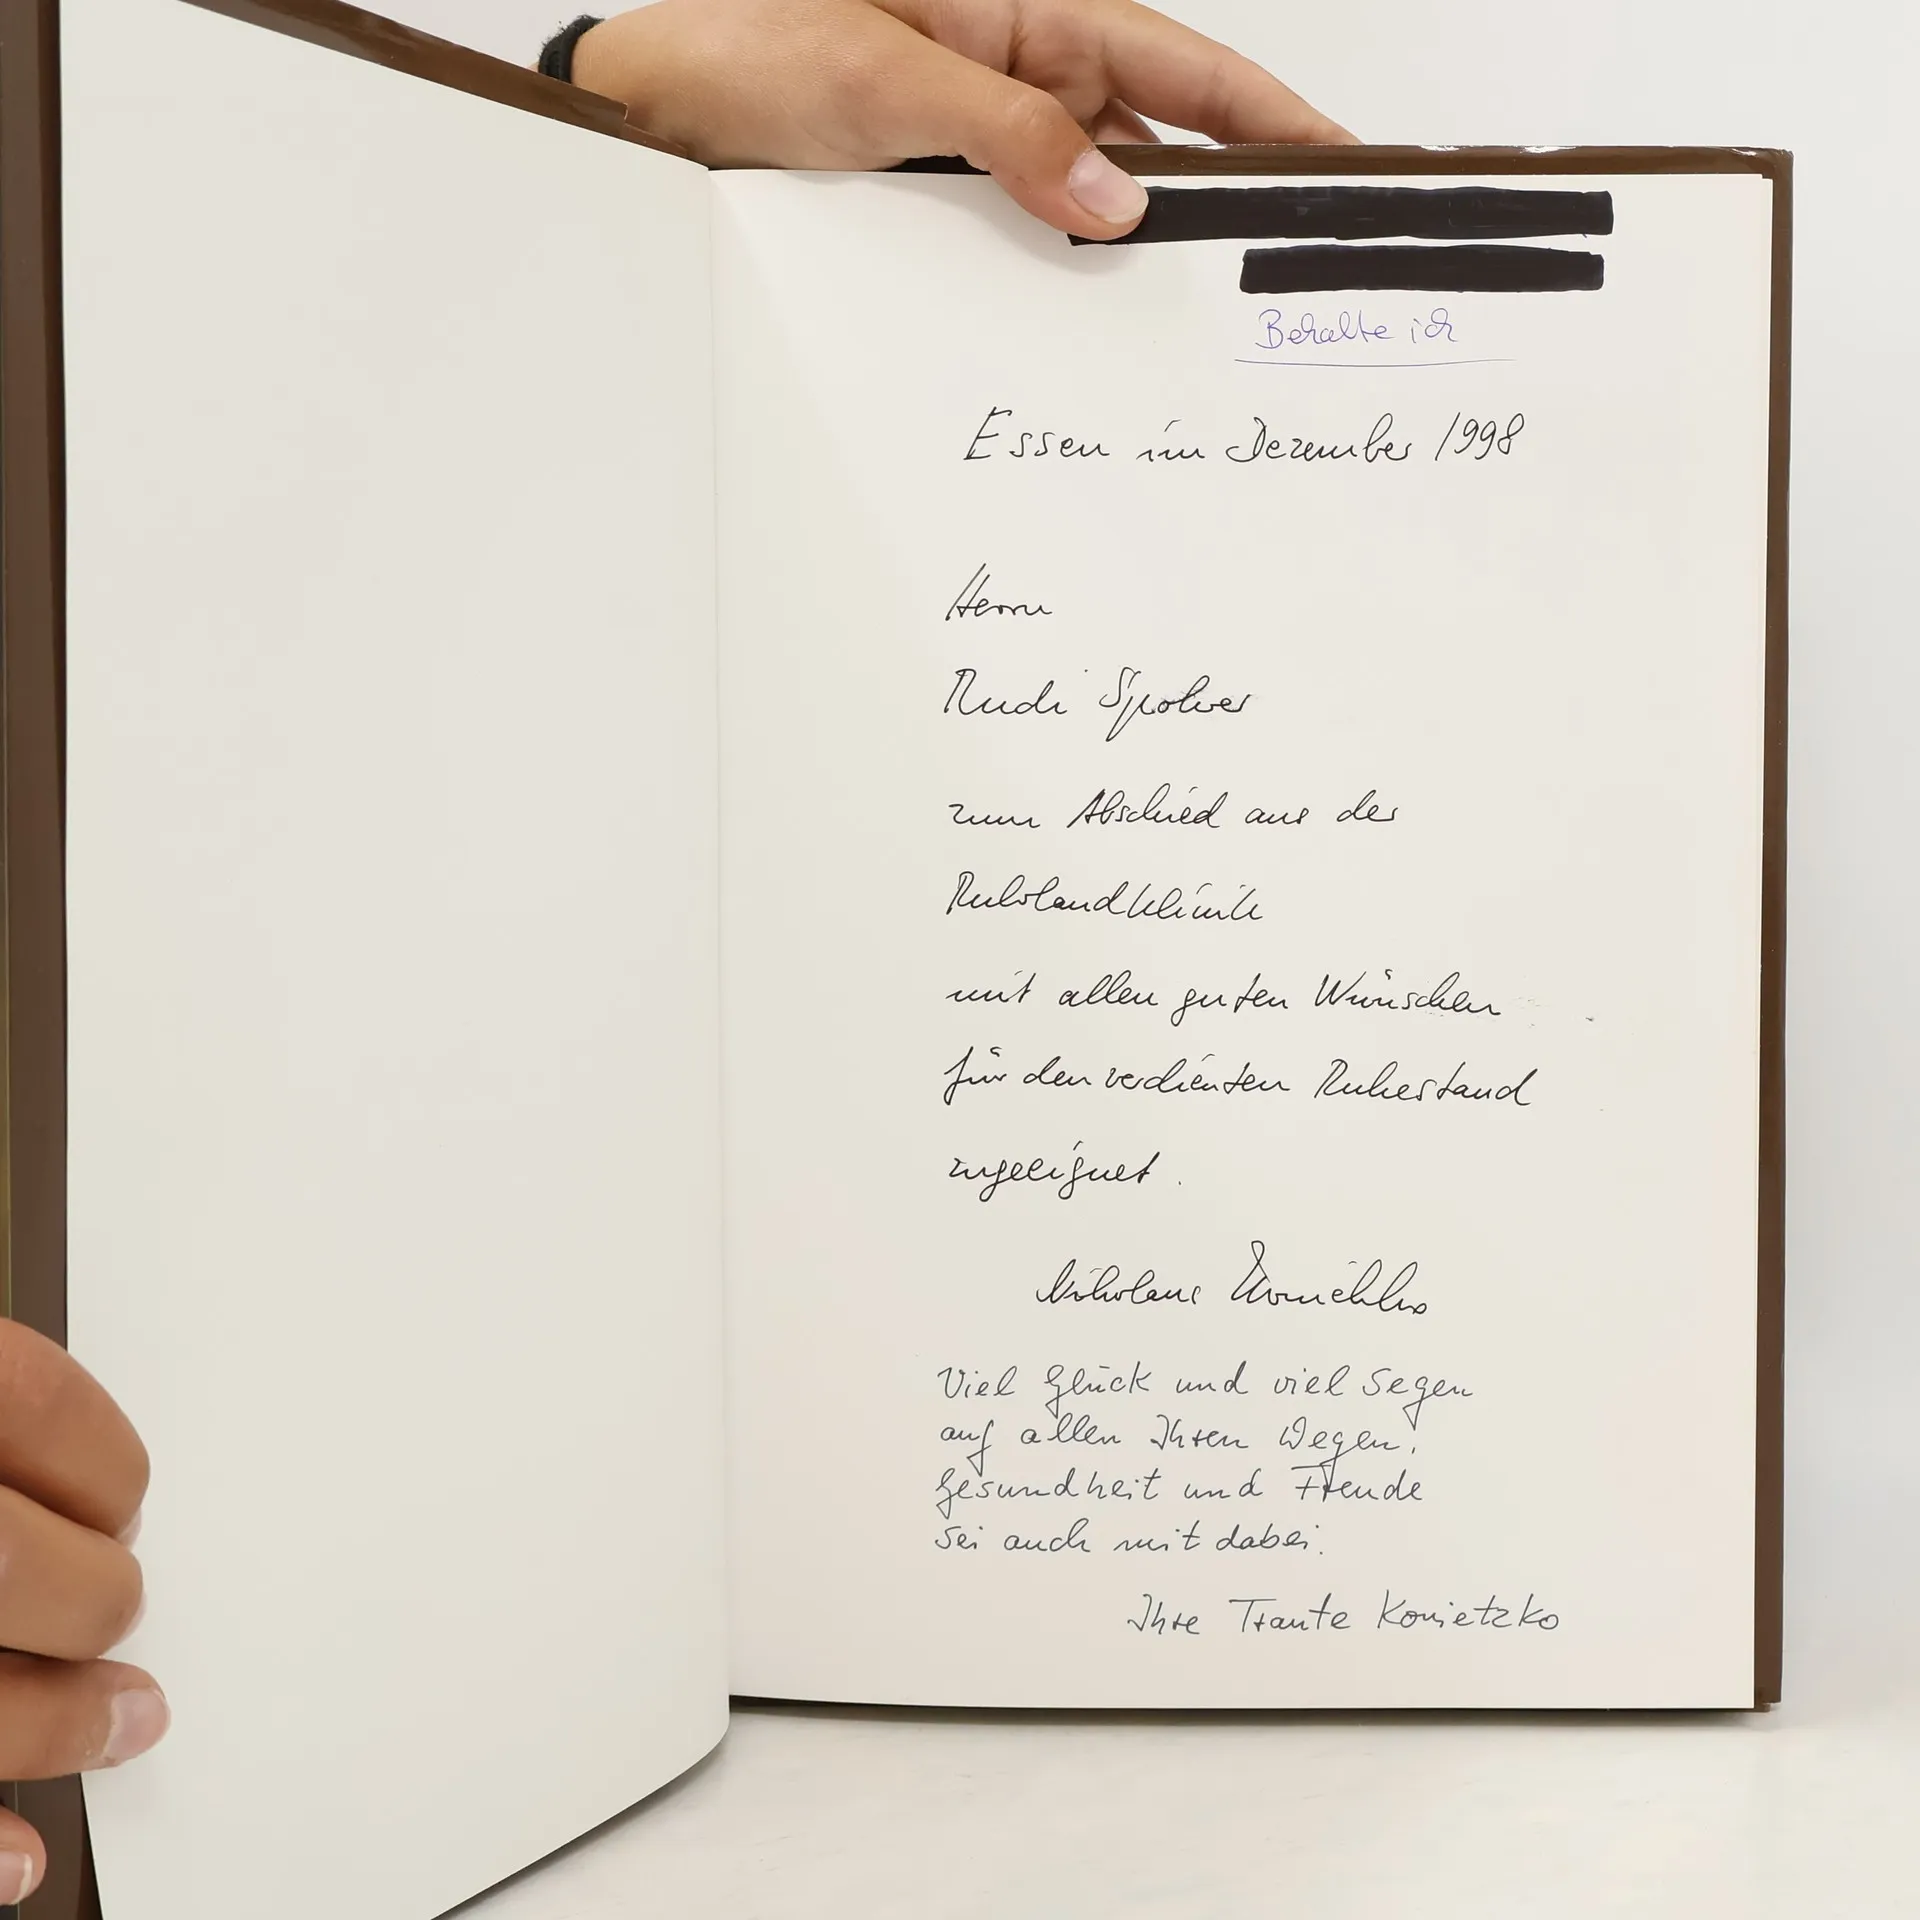 Behalte ich
Essen im Dezember 1998
Herrn
Rudi Spolver
zum Abschied aus der
Ruhrlandklinik
mit allen guten Wünschen
für den verdienten Ruhestand
zugeeignet.
Nikolaus Konietzko
Viel Glück und viel Segen
auf allen Ihren Wegen,
Gesundheit und Freude
sei auch mit dabei.
Ihre Traute Konietzko